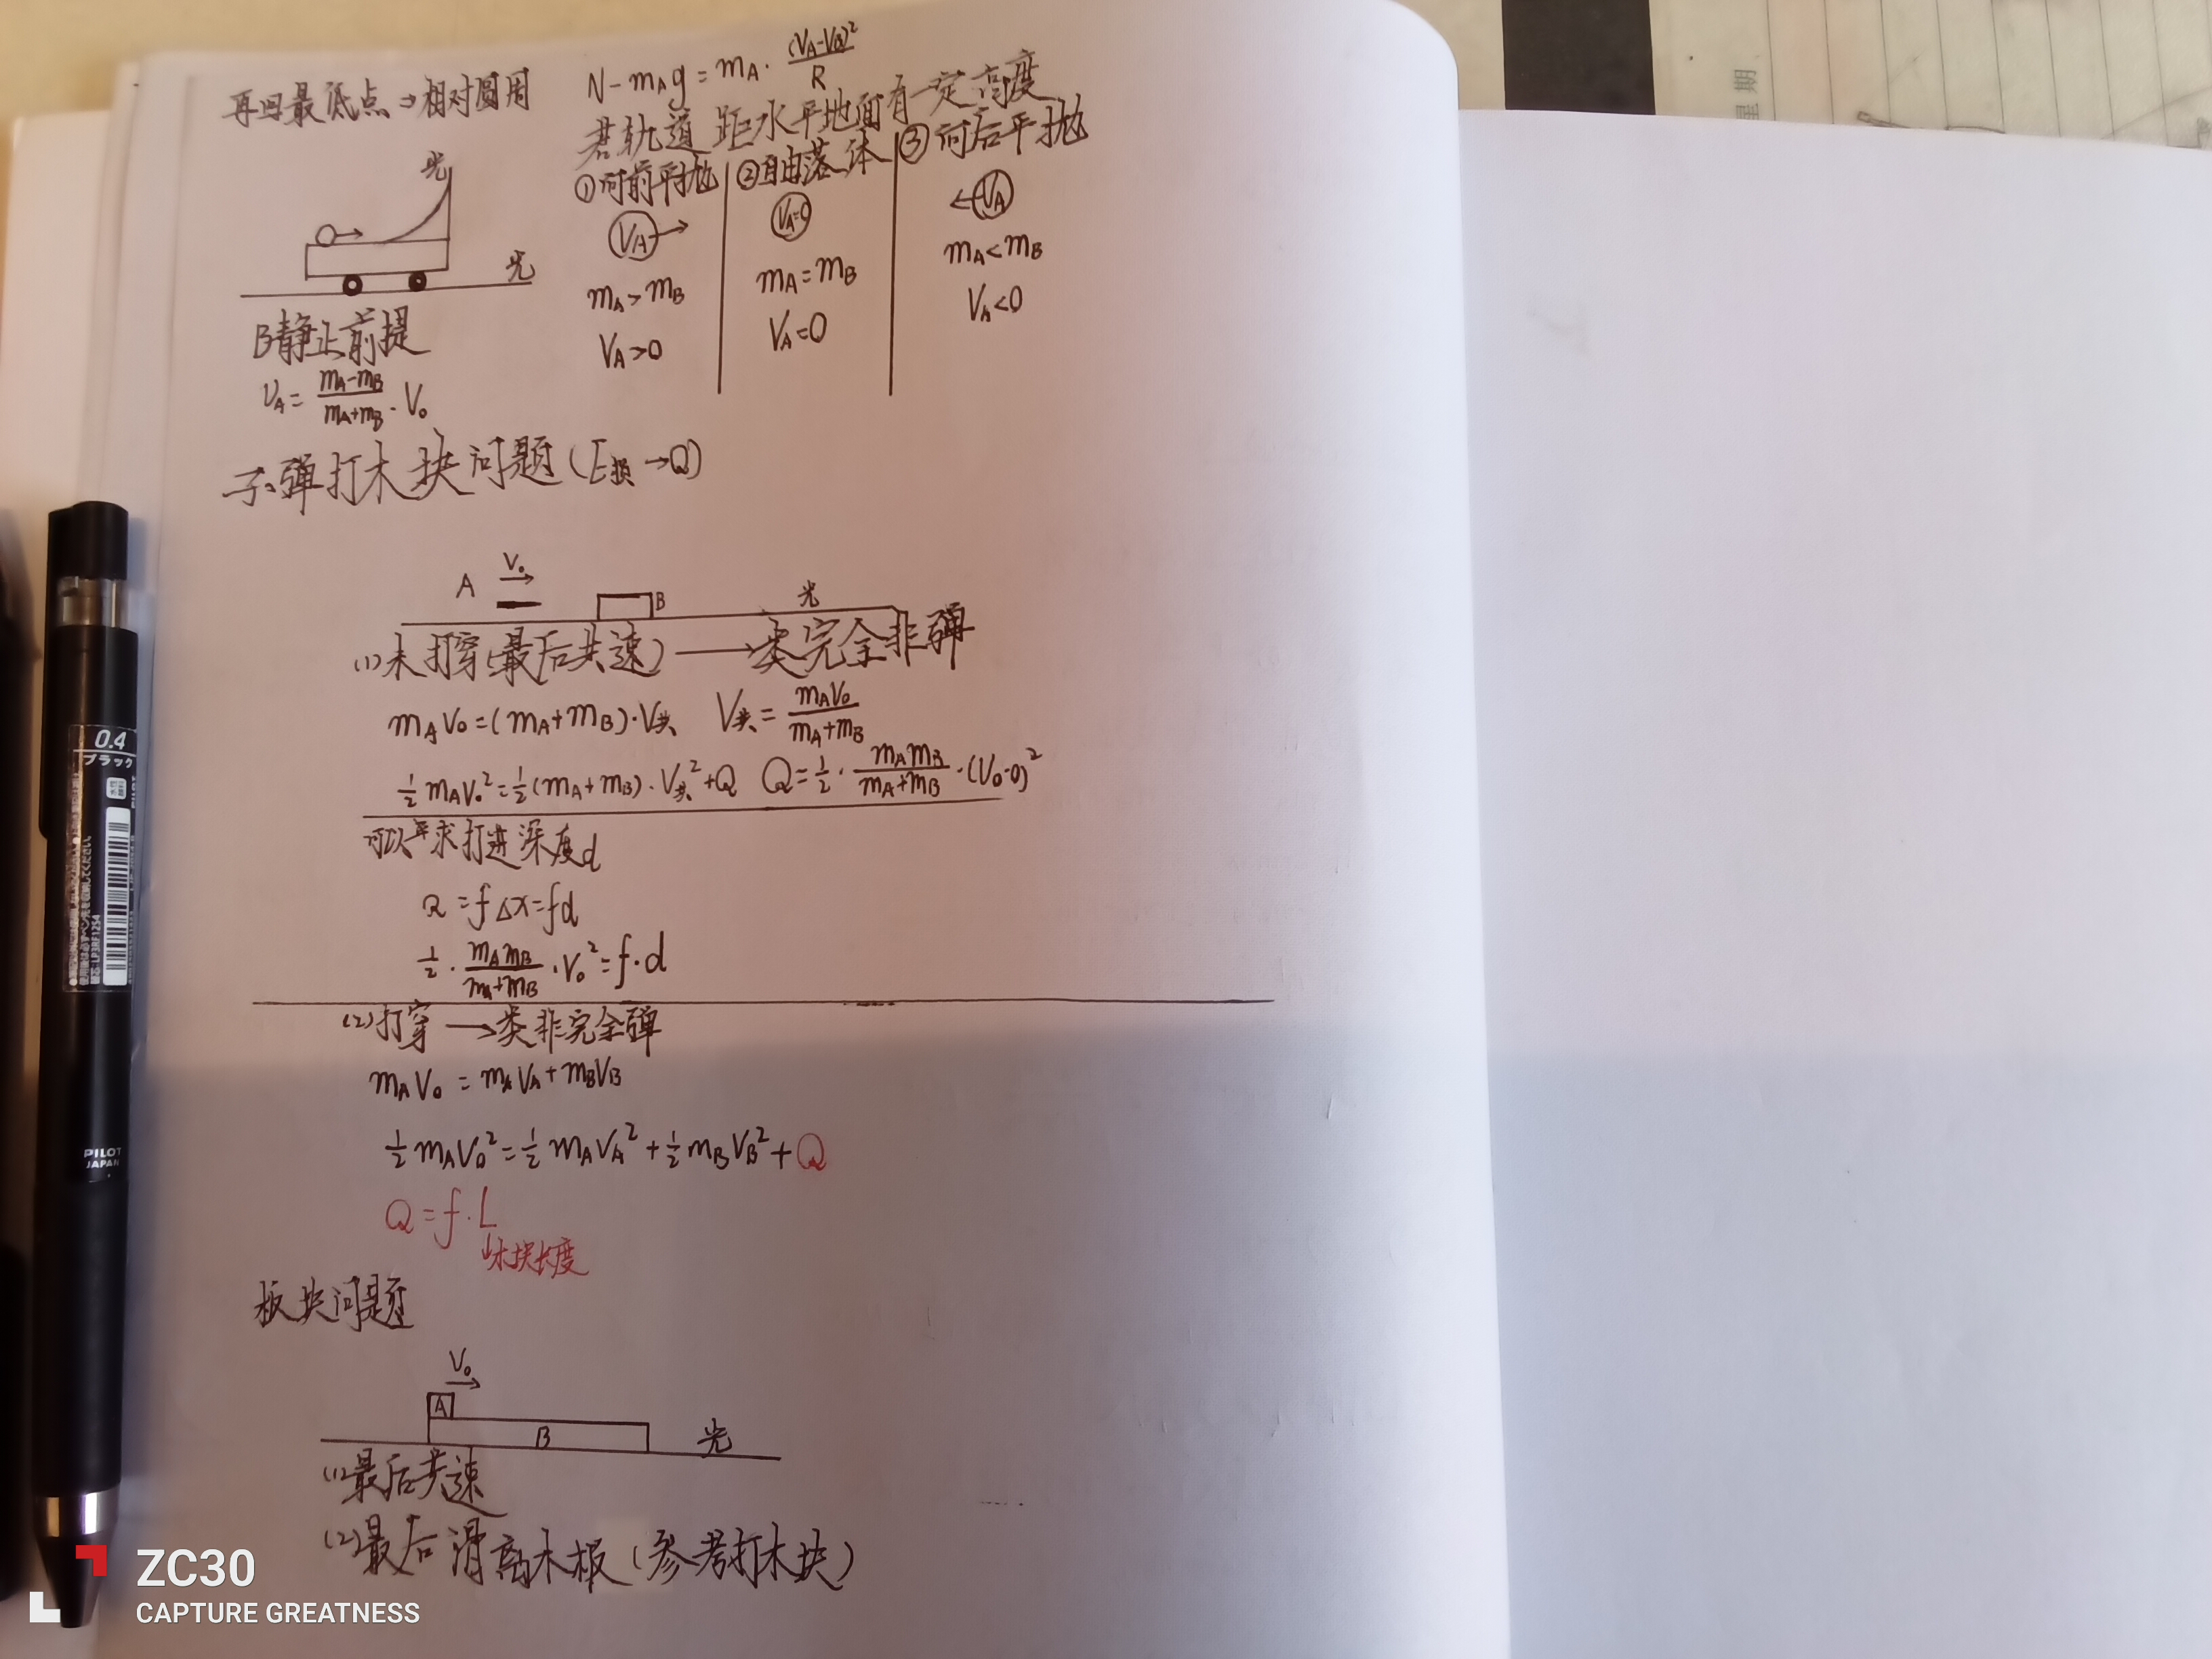 再回最低点⇒相对圆周
N-mAg=mA·(VA-VB)²/R
若轨道距水平地面有一定高度
①向前平抛
VA→
mA>mB
VA>0
②自由落体
VA=0
mA=mB
VA=0
③向后平抛
←VA
mA<mB
VA<0
光
光
B静止前提
VA=(mA-mB)/(mA+mB)·V₀
子弹打木块问题(E损→Q)
A V₀ B 光
(1)未打穿(最后共速)→类完全非弹
mAV₀=(mA+mB)·V共 V共=mAV₀/(mA+mB)
½mAV₀²=½(mA+mB)·V共²+Q Q=½·mAmB/(mA+mB)·(V₀-0)²
可以求打进深度d
Q=fΔx=fd
½·mAmB/(mA+mB)·V₀²=f·d
(2)打穿→类非完全弹
mAV₀=mAVA+mBVB
½mAV₀²=½mAVA²+½mBVB²+Q
Q=f·L
木块长度
板块问题
V₀
A
B 光
(1)最后共速
(2)最后滑离木板(参考打木块)
0.4
ブラック
PILOT
JAPAN
ZC30
CAPTURE GREATNESS